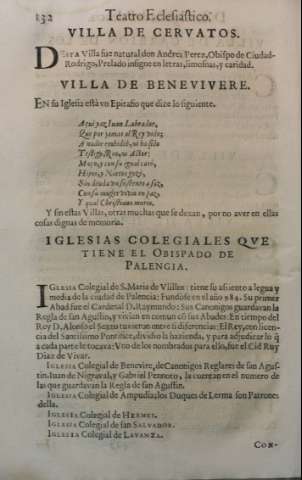 132 Teatro Eclesiastico.
VILLA DE CERVATOS.
DESTA Villa fue natural don Andres Perez, Obispo de Ciudad-
Rodrigo, Prelado insigne en letras, limosnas, y caridad.
VILLA DE BENEVIVERE.
EN su Iglesia està vn Epitafio que dize lo siguiente.
Aqui yaz Juan Labrador,
Que por jamas al Rey vido;
A nadie
Testigo, Reo, ni Actor:
Moço, y con su igual casò,
Hijos, y Nietos gozò,
Sin deuda
Con su muger viviò en paz,
Y qual Christiano muriò.
Y sin estas Villas, otras muchas que se dexan, por no aver en ellas
cosas dignas de memoria.
IGLESIAS COLEGIALES QVE
TIENE EL OBISPADO DE
PALENCIA.
IGLESIA Colegial de S. Maria de Vsillos: tiene su assiento a legua y
media de la ciudad de Palencia: Fundose en el año 984. Su primer
Abad fue el Cardenal D. Raymundo: Sus Canonigos guardavan la
Regla de san Agustin, y vivian en comun cõ sus Abades: En tiempo del
Rey D. Alonso el Sexto tuvieron entre si diferencias: El Rey, con licen
cia del Santissimo Pontifice, dividio la hazienda, y para adjudicar lo q̃
a cada parte le tocava: Vno de los nombrados para ello, fue el Cid Ruy
Diaz de Vivar.
IGLESIA Colegial de Benevire, de Canonigos Reglares de san Agus-
tin. Juan de Nigravalt, y Gabriel Pennoto, la cuentan en el numero de
las que guardavan la Regla de san Agustin.
IGLESIA Colegial de Ampudia, los Duques de Lerma son Patrones
della.
IGLESIA Colegial de HERMES.
IGLESIA Colegial de SAN SALVADOR.
IGLESIA Colegial de LAVANZA.
CON-